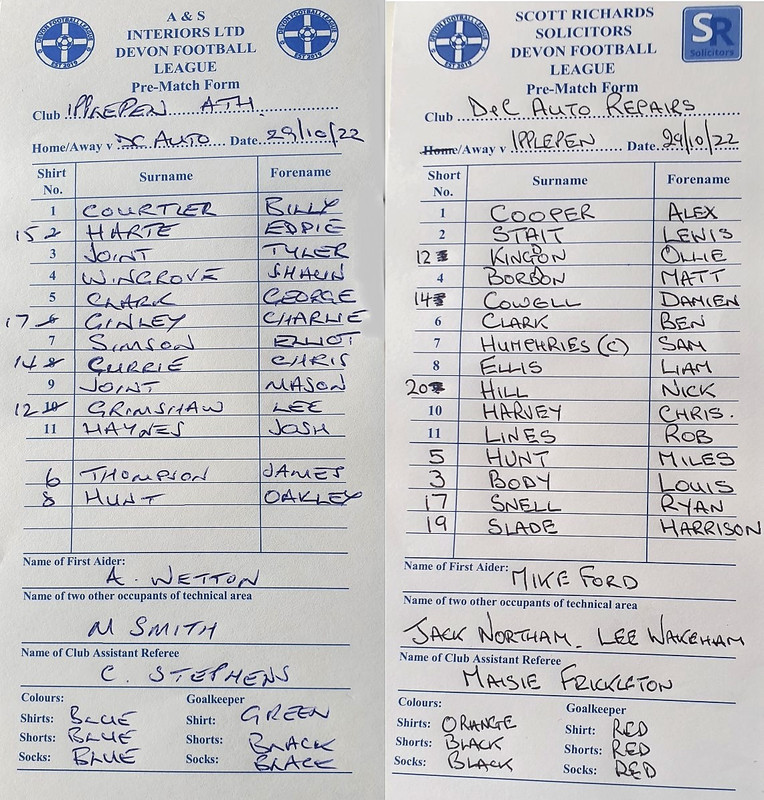 A & S
INTERIORS LTD
DEVON FOOTBALL
LEAGUE
Pre-Match Form
Club IPPLEPEN ATH.
Home/Away v DC AUTO Date 29/10/22
Shirt No. Surname Forename
1 COURTIER BILLY
15 2 HARTE EDDIE
3 JOINT TYLER
4 WINGROVE SHAUN
5 CLARK GEORGE
17 6 GINLEY CHARLIE
7 SIMSON ELLIOT
14 8 CURRIE CHRIS
9 JOINT MASON
12 10 GRIMSHAW LEE
11 HAYNES JOSH
6 THOMPSON JAMES
8 HUNT OAKLEY
Name of First Aider:
A. WETTON
Name of two other occupants of technical area
M SMITH
Name of Club Assistant Referee
C. STEPHENS
Colours: Goalkeeper
Shirts: BLUE Shirt: GREEN
Shorts: BLUE Shorts: BLACK
Socks: BLUE Socks: BLACK
SCOTT RICHARDS
SOLICITORS
DEVON FOOTBALL
LEAGUE
Pre-Match Form
SR
Solicitors
Club D&C AUTO REPAIRS
Home/Away v IPPLEPEN Date 29/10/22
Short No. Surname Forename
1 COOPER ALEX
2 STAIT LEWIS
12 KINGDON OLLIE
4 BORBON MATT
14 COWELL DAMIEN
6 CLARK BEN
7 HUMPHRIES (C) SAM
8 ELLIS LIAM
20 HILL NICK
10 HARVEY CHRIS.
11 LINES ROB
5 HUNT MILES
3 BODY LOUIS
17 SNELL RYAN
19 SLADE HARRISON
Name of First Aider: MIKE FORD
Name of two other occupants of technical area
JACK NORTHAM. LEE WAKEHAM
Name of Club Assistant Referee
MAISIE FRICKLETON
Colours: Goalkeeper
Shirts: ORANGE Shirt: RED
Shorts: BLACK Shorts: RED
Socks: BLACK Socks: RED